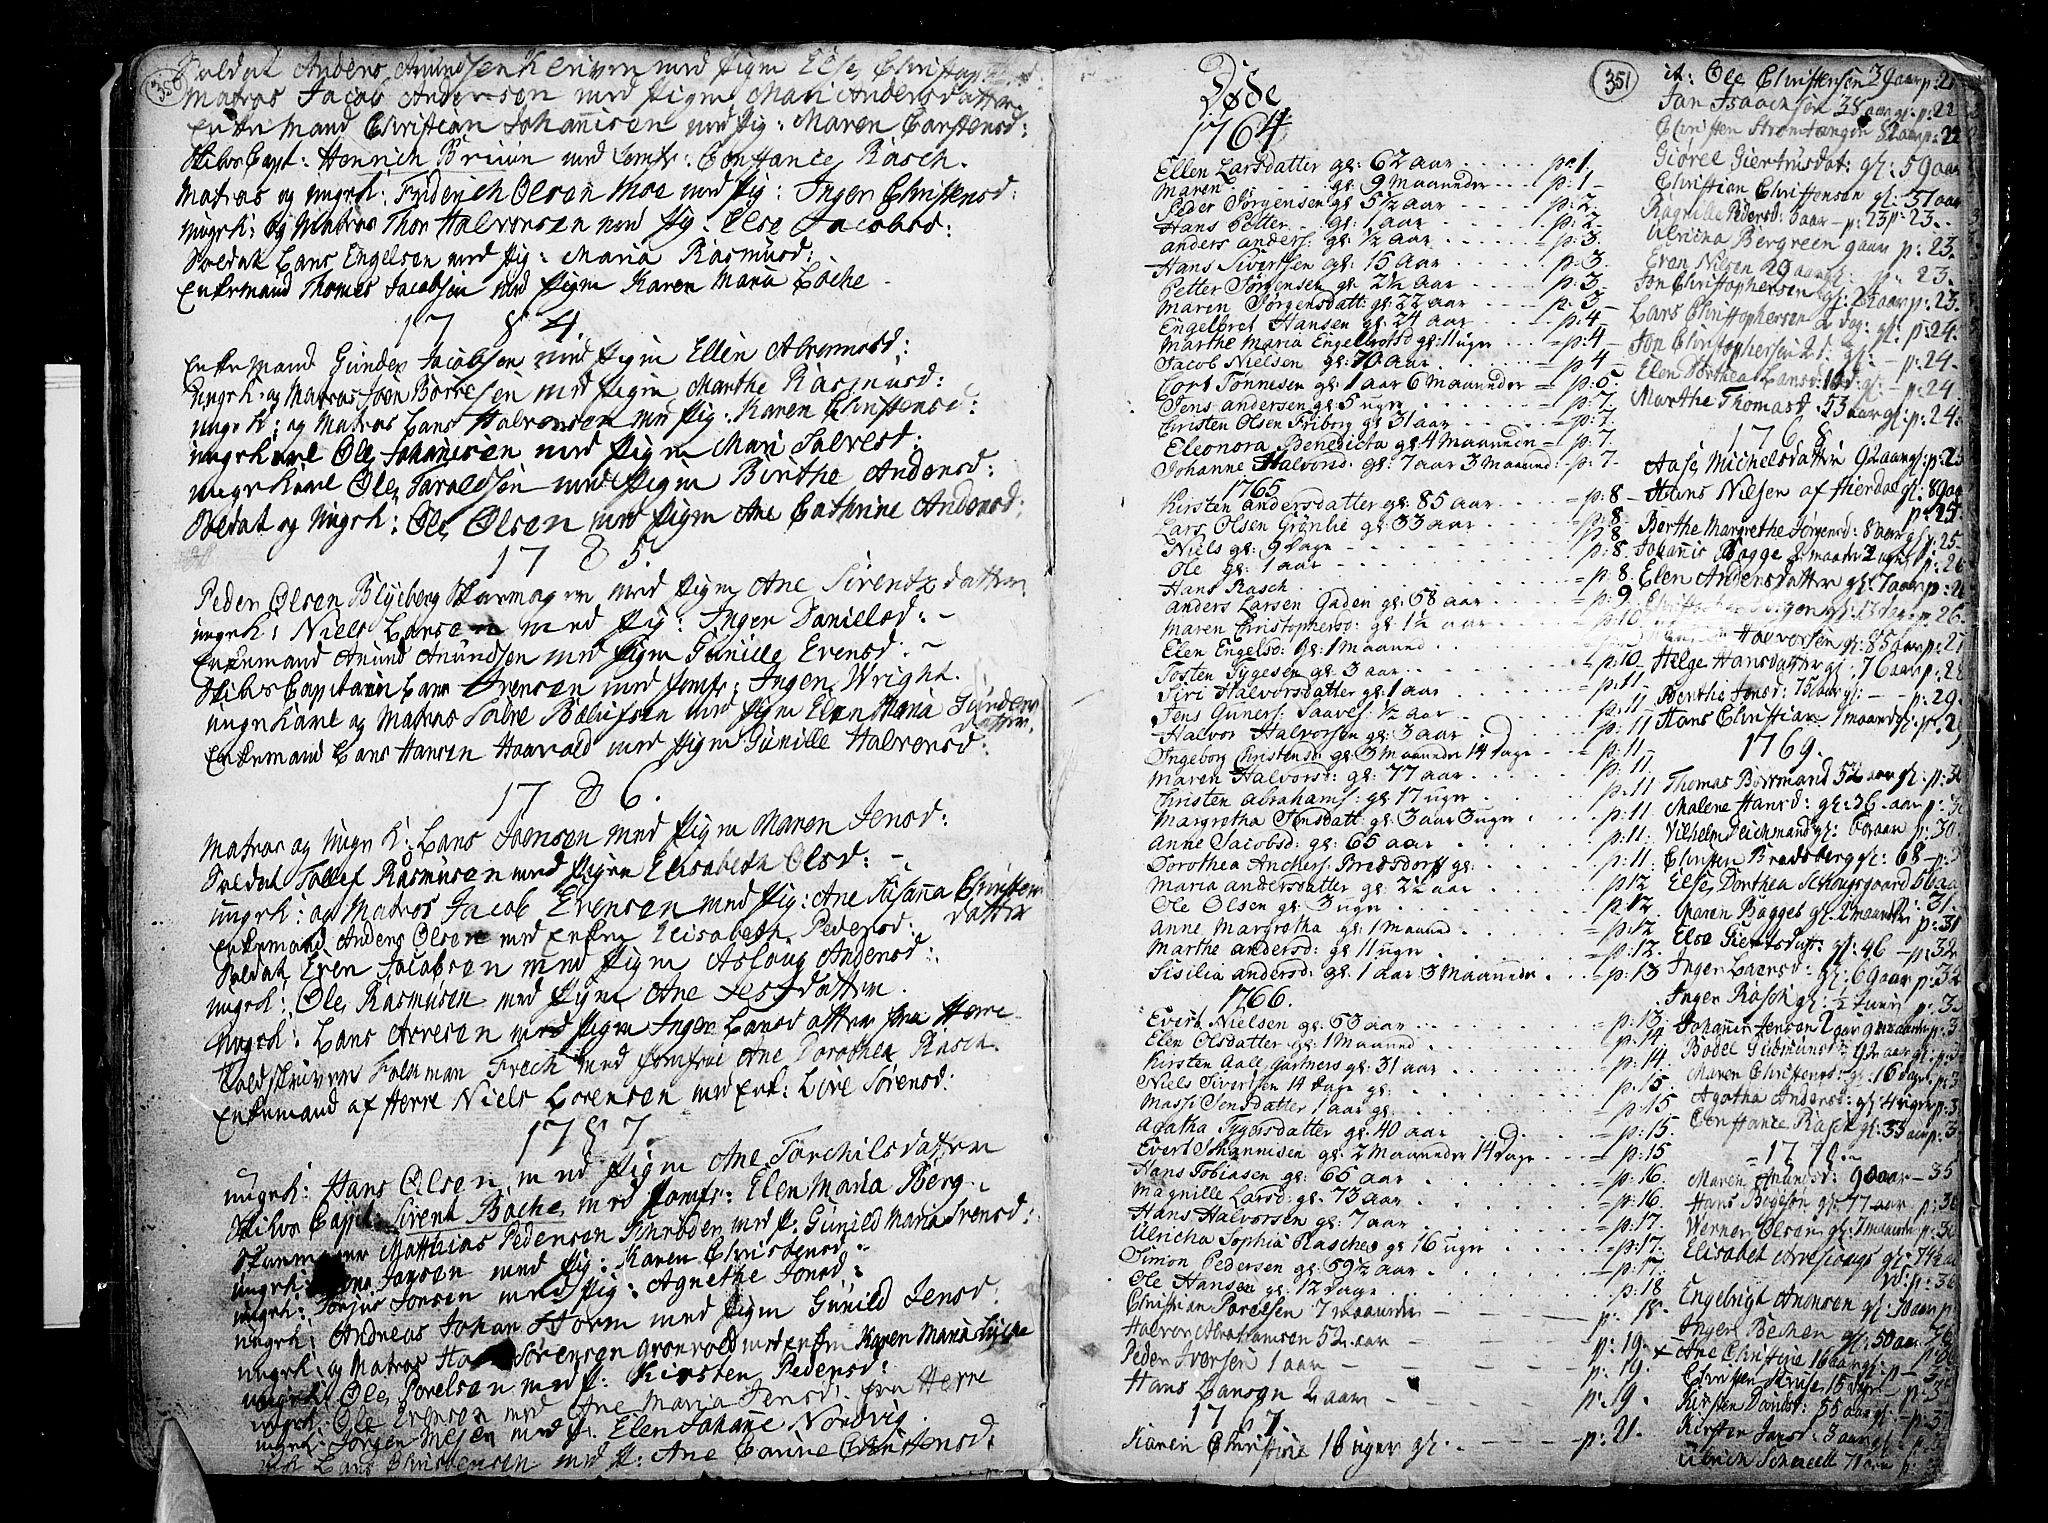 350
Soldat Anders Amundsen med Pigen Else
Matros Jacob Andersen med Pigen Mari Andersdatter
Enke Mand Christian Johannsen med Pig: Maren Carstensd:
Skibs Capt: Henrich Bruun med Jomfr: Constance Rasch.
Matros og ungk: Friderich Olsen Moe med Pig: Inger Christensd:
ungk: og Matros Thor Halvorsen med Pig: Else Jacobsd:
Soldat Lars Engelsen med Pig: Maria Rasmusd:
Enkemand Thomas Jacobsen med Pigen Karen Maria Bøche
1784.
Enke Mand Gunder Jacobsen med Pigen Ellen
Ungk: og Matros Joen Børresen med Pigen Marthe Rasmusd:
ungk: og Matros Lars Halvorsen med Pig: Karen Christensd:
ungkarl Ole Johannsen med Pigen Mari Salvesd:
ungkarl Ole Taraldsen med Pigen Birthe Andersd:
Soldat og ungk: Ole Olsen med Pigen Ane Cathrine Andersd:
1785.
Peder Olsen Blyeberg Skomager med Pigen Ane Sirentzdatter
ungk: Niels Larsen med Pig: Inger Danielsd:
Enkemand Amund Amundsen med Pigen Gunille Evensd:
Skibs Capitain Lars Svensen med Jomfr: Inger Wright.
ungkarl og Matros med Pigen Elen Maria Gundersdatter.
Enkemand Lars Hansen Haavold med Pigen Gunille Halvorsd:
1786.
Matros og ungk: Lars Joensen med Pigen Maren Jensd:
Soldat Tollef Rasmusen med Pigen Elisabeth Olsd:
ungk: og Matros Jacob Evensen med Pig: Ane Susanna Christensdatter
Enkemand Anders Olsen med Enken Elisabeth Pedersd:
Soldat Even Jacobsen med Pigen Aslaug Andersd:
ungk: Ole Rasmusen med Pigen Ane
ungk: Lars Arvesen med Pigen Inger Larsdatter fra Herre
Foleman Frech med Jomfrue Ane Dorothea Rasch.
Enkemand af Herre Niels Sorensen med Enk: Live Sørensd:
1787.
ungk: Hans Olsen med Pigen Ane Torchilsdatter
Skibs Capt: Sirent Bøche med Jomfr: Elen Maria Berg
Skomager Matthias Pedersen Schrøder med P: Gunild Maria
ungk: Jansen med Pig: Karen Christensd:
ungk: Jonsen med Pig: Agnethe Jonsd:
ungk: Andreas Johan Storm med Pigen Gunild Jensd:
ungk: og Matros Sørensen Gronvold med Enken Karen Maria
ungk: Ole Povelsen med P: Kirsten Pedersd:
ungk: Ole Evensen med Ane Maria Jensd: fra Herre
ungk: Jørgen med P: Elen Johanne Nordvig.
Lars Christensen med P: Ane Carine Christensd:
351
Døde
1764
Ellen Larsdatter gl: 62 aar p: 1.
Maren gl: 9 maaneder p: 1
Peder Jørgensen gl: 5½ aar p: 2
Hans Petter gl: 1 aar p: 2
anders anders: gl: ½ aar p: 3
Hans Sivertsen gl: 15 aar p: 3
Petter Jørgensen gl: 2½ aar p: 3
Maren Jørgensdatt: gl: 22 aar p: 3
Engelbret Hansen gl: 24 aar p: 4
Marthe Maria Engelbretsd gl: 11 uger p: 4
Jacob Nielsen gl: 70 aar p: 4
Cort Tønnesen gl: 1 aar 6 maaneder p: 5
Jens andersen gl: 5 uger p: 7
Christen Olsen Friborg gl: 31 aar p: 7
Eleonora Benedicta gl: 4 maaneder p: 7
Johanne Halvorsd: gl: 7 aar 3 maaned: p: 7
1765
Kirsten andersdatter gl: 85 aar p: 8
Lars Olsen Grønlie gl: 33 aar p: 8
Niels gl: 9 dage p: 8
Ole gl: 1 aar p: 8
Hans Rasch p: 8
anders Larsen Gaden gl: 58 aar p: 9
Maren Christophersd: gl: 1½ aar p: 10
Elen Engelsd: gl: 1 maaned
Tosten Tygesen gl: 3 aar p: 10
Siri Halvorsdatter gl: 1 aar p: 11
Jens Guners: Saavel: ½ aar p: 11
Halvor Halvorsen gl: 3 aar p: 11
Ingeborg Christensd: gl: 3 maaneder 14 dage p: 11
Maren Halvorsd: gl: 77 aar p: 11
Christen abrahams: gl: 17 uger p: 11
Margretha Jensdatt: gl: 3 aar 3 uger p: 11
Anne Jacobsd: gl: 65 aar p: 11
Dorothea Anchers: Bredsdorff gl: p: 11
Maria andersdatter gl: 22 aar p: 12
Ole Olsen gl: 3 uger p: 12
Anne Margretha gl: 1 maaned p: 12
Marthe andersd: gl: 11 uger p: 12
Sisilia andersd: gl: 1 aar 3 maaneder p: 13
1766.
Evert Nielsen gl: 53 aar p: 13
Elen Olsdatter gl: 1 maaned p: 14
Kirsten Aall Gartners gl: 31 aar p: 14
Niels Sivertsen 14 dage gl: p: 15
Massi Jensdatter 1 aar gl: p: 15
Agatha Tygesdatter gl: 40 aar p: 15
Evert Johannisen gl: 2 maaneder 14 dage p: 15
Hans Tobiasen gl: 65 aar p: 16
Magnille Larsd: gl: 73 aar p: 16
Hans Halvorsen gl: 7 aar p: 17
Ulricha Sophia Rasches gl 16 uger p: 17
Simon Pedersen gl: 59½ aar p: 17
Ole Hansen gl: 12 dage p: 18
Christian Povelsen 7 maaneder p: 18
Halvor Abrahamsen 52 aar p: 19
Peder Iversen 1 aar p: 19
Hans Larsen 2 aar p: 19
1767
Karen Christine 16 uger gl: p: 21.
it: Ole Christensen 39 aar p: 21
Jan Isaachsen 38 aar gl: p: 22
Christen Strømtangen 82 aar p: 22
Giøret Giertrusdat: gl: 59 aar
Christian Christensen gl: 37 aar
Ragnille Pedersd: 3 aar p: 23 p: 23.
Ulricha Bergreen p: 23.
Even Nilsen 29 aar gl: p: 23.
Jon Christophersen gl: 25 aar p: 23.
Lars Christophersen 2 dag: gl: p: 24.
Jon Christophersen 2 d: gl: p: 24.
Elen Dorthea Larsd: 16 d: gl: p: 24
Marthe Thomasd: 53 aar gl: p: 24.
1768
Aase Michelsdatter 92 aar gl: p: 25
Hans Nilsen af Hierdal gl: 89 aar p: 25.
Berthe Margrethe Jørgensd: 8 aar gl p: 25
Johannis Bagge 2 maander 2 uger p: 26
Elen Andersdatter gl: 7 aar p: 26
Jørgens gl: 13 dage p: 26.
Halvorsen gl: 85 aar p: 27
Helge Hansdatter gl: 76 aar p: 28
Berthe Jensd: 75 aar gl: p: 29.
Hans Christian 1 maaned gl: p: 29
1769.
Thomas Borrmand 52 aar gl: p: 30
Malene Hansd: gl: 36 aar p: 30
Vilhelm Deichmand gl: 60 aar p: 30
Christen Bredsberg gl: 68
Else Dorthea Schougaard 56 aar p: 31.
Maren Bagges gl: 2 maander p: 31
Else Giertsdatt: gl: 46 p: 32
Inger Laersd: gl: 69 aar p: 32
Inger Rasch gl: ½ time p: 33
Johannes Jensen 2 aar 9 maander p: 3
Bodel Gudmunsd: 92 aar gl: p: 3
Maren Christensd: gl: 16 dage p: 3
Agatha Andersd: gl: 4 uger p: 3
Constance Rasch gl: 33 aar p: 3
1770.
Maren Amunsd: 90 aar 35
Hans Bryeson gl: 77 aar p: 36
Werner Olsen gl: 7 maander p: 36
Elisabet gl: 74½ aar p: 36
Engelrigt Aronsen gl: 30 aar p
Inger Bechen gl: 50 aar 36
x Ane Christine 16 aar gl: p: 36
Christen Struse 15 dage p: 3
Kirsten Danielsd: 55 aar gl: p: 37
Kirsten Jansd: 3 aar gl: p: 3
Ulrich Schneell 71 aar p: 3